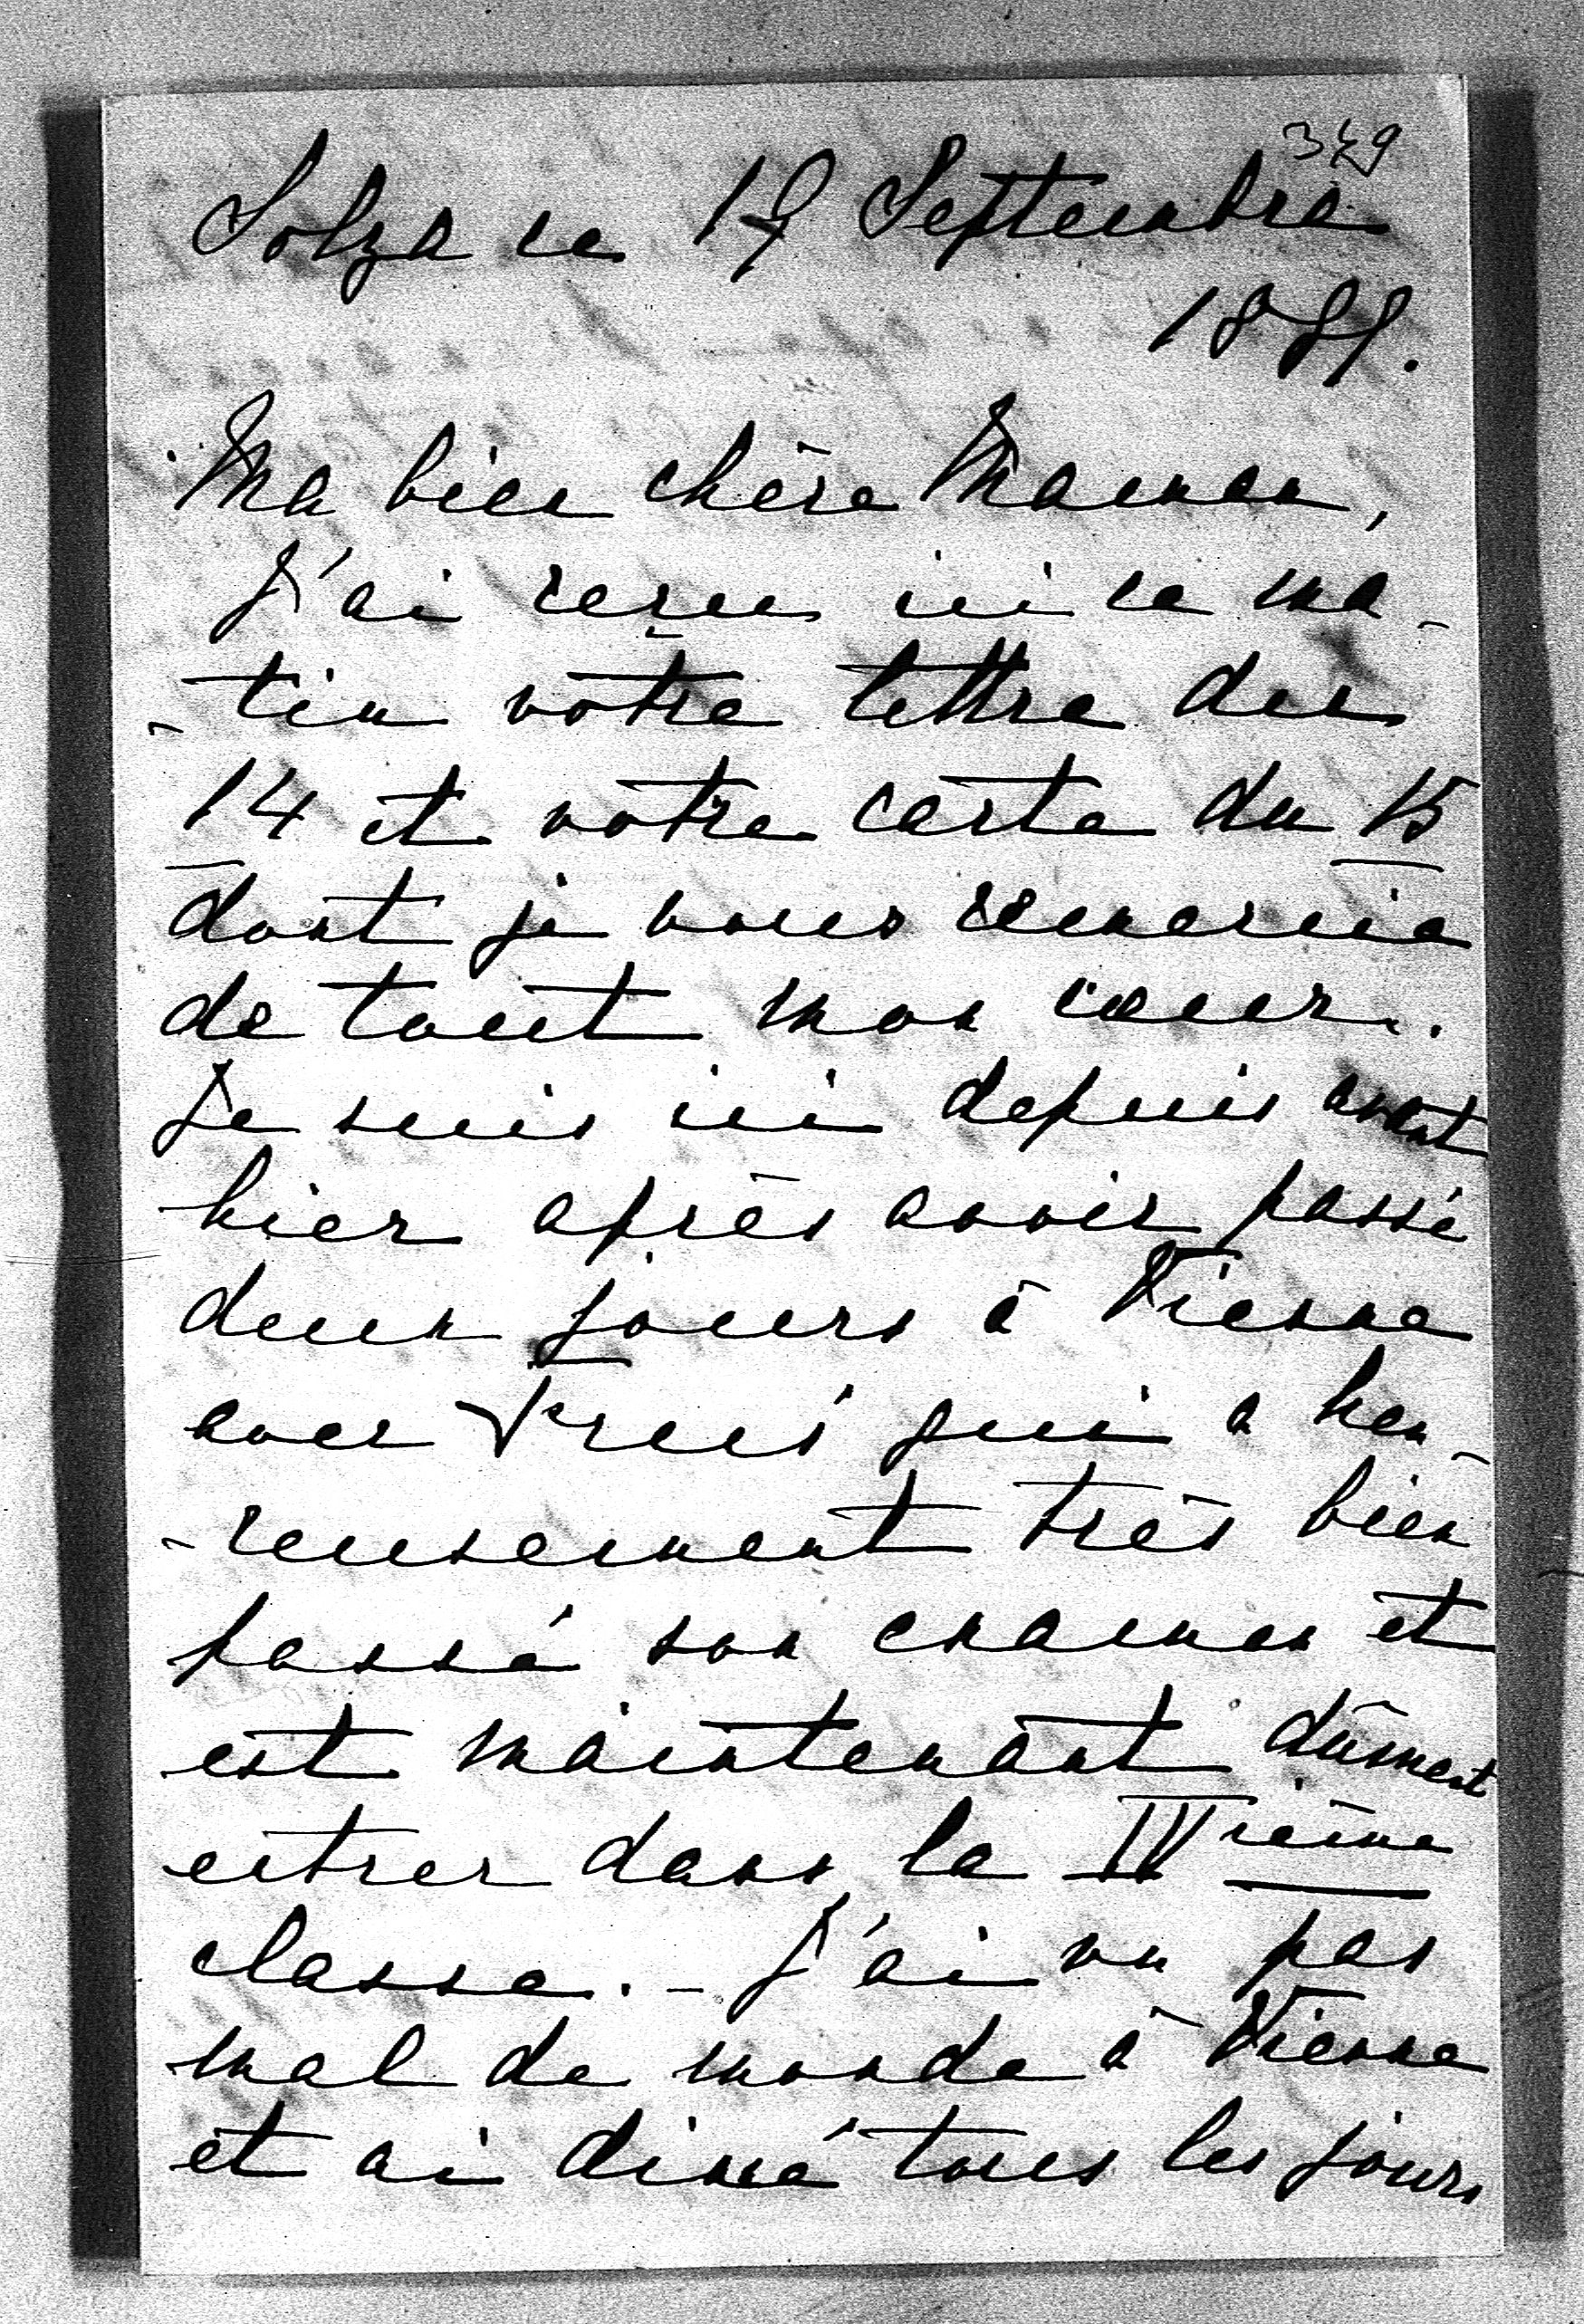 349
Solza ce 19 Septembre
1881.
Ma bien chère Maman,
J'ai reçu ici ce ma-
-tin votre lettre du
14 et votre carte du 15
dont je vous remercie
de tout mon cœur.
Je suis ici depuis avant
hier après avoir passé
deux jours à Vienne
avec qui a heu-
-reusement très bien
passé son examen et
est maintenant dûment
entrer dans la IVième
classe. - J'ai vu pas
mal de monde à Vienne
et ai diné tous les jours